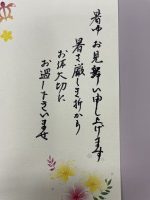 暑中お見舞い申し上げます
暑さ厳しき折から
お体大切に
お過し下さいませ